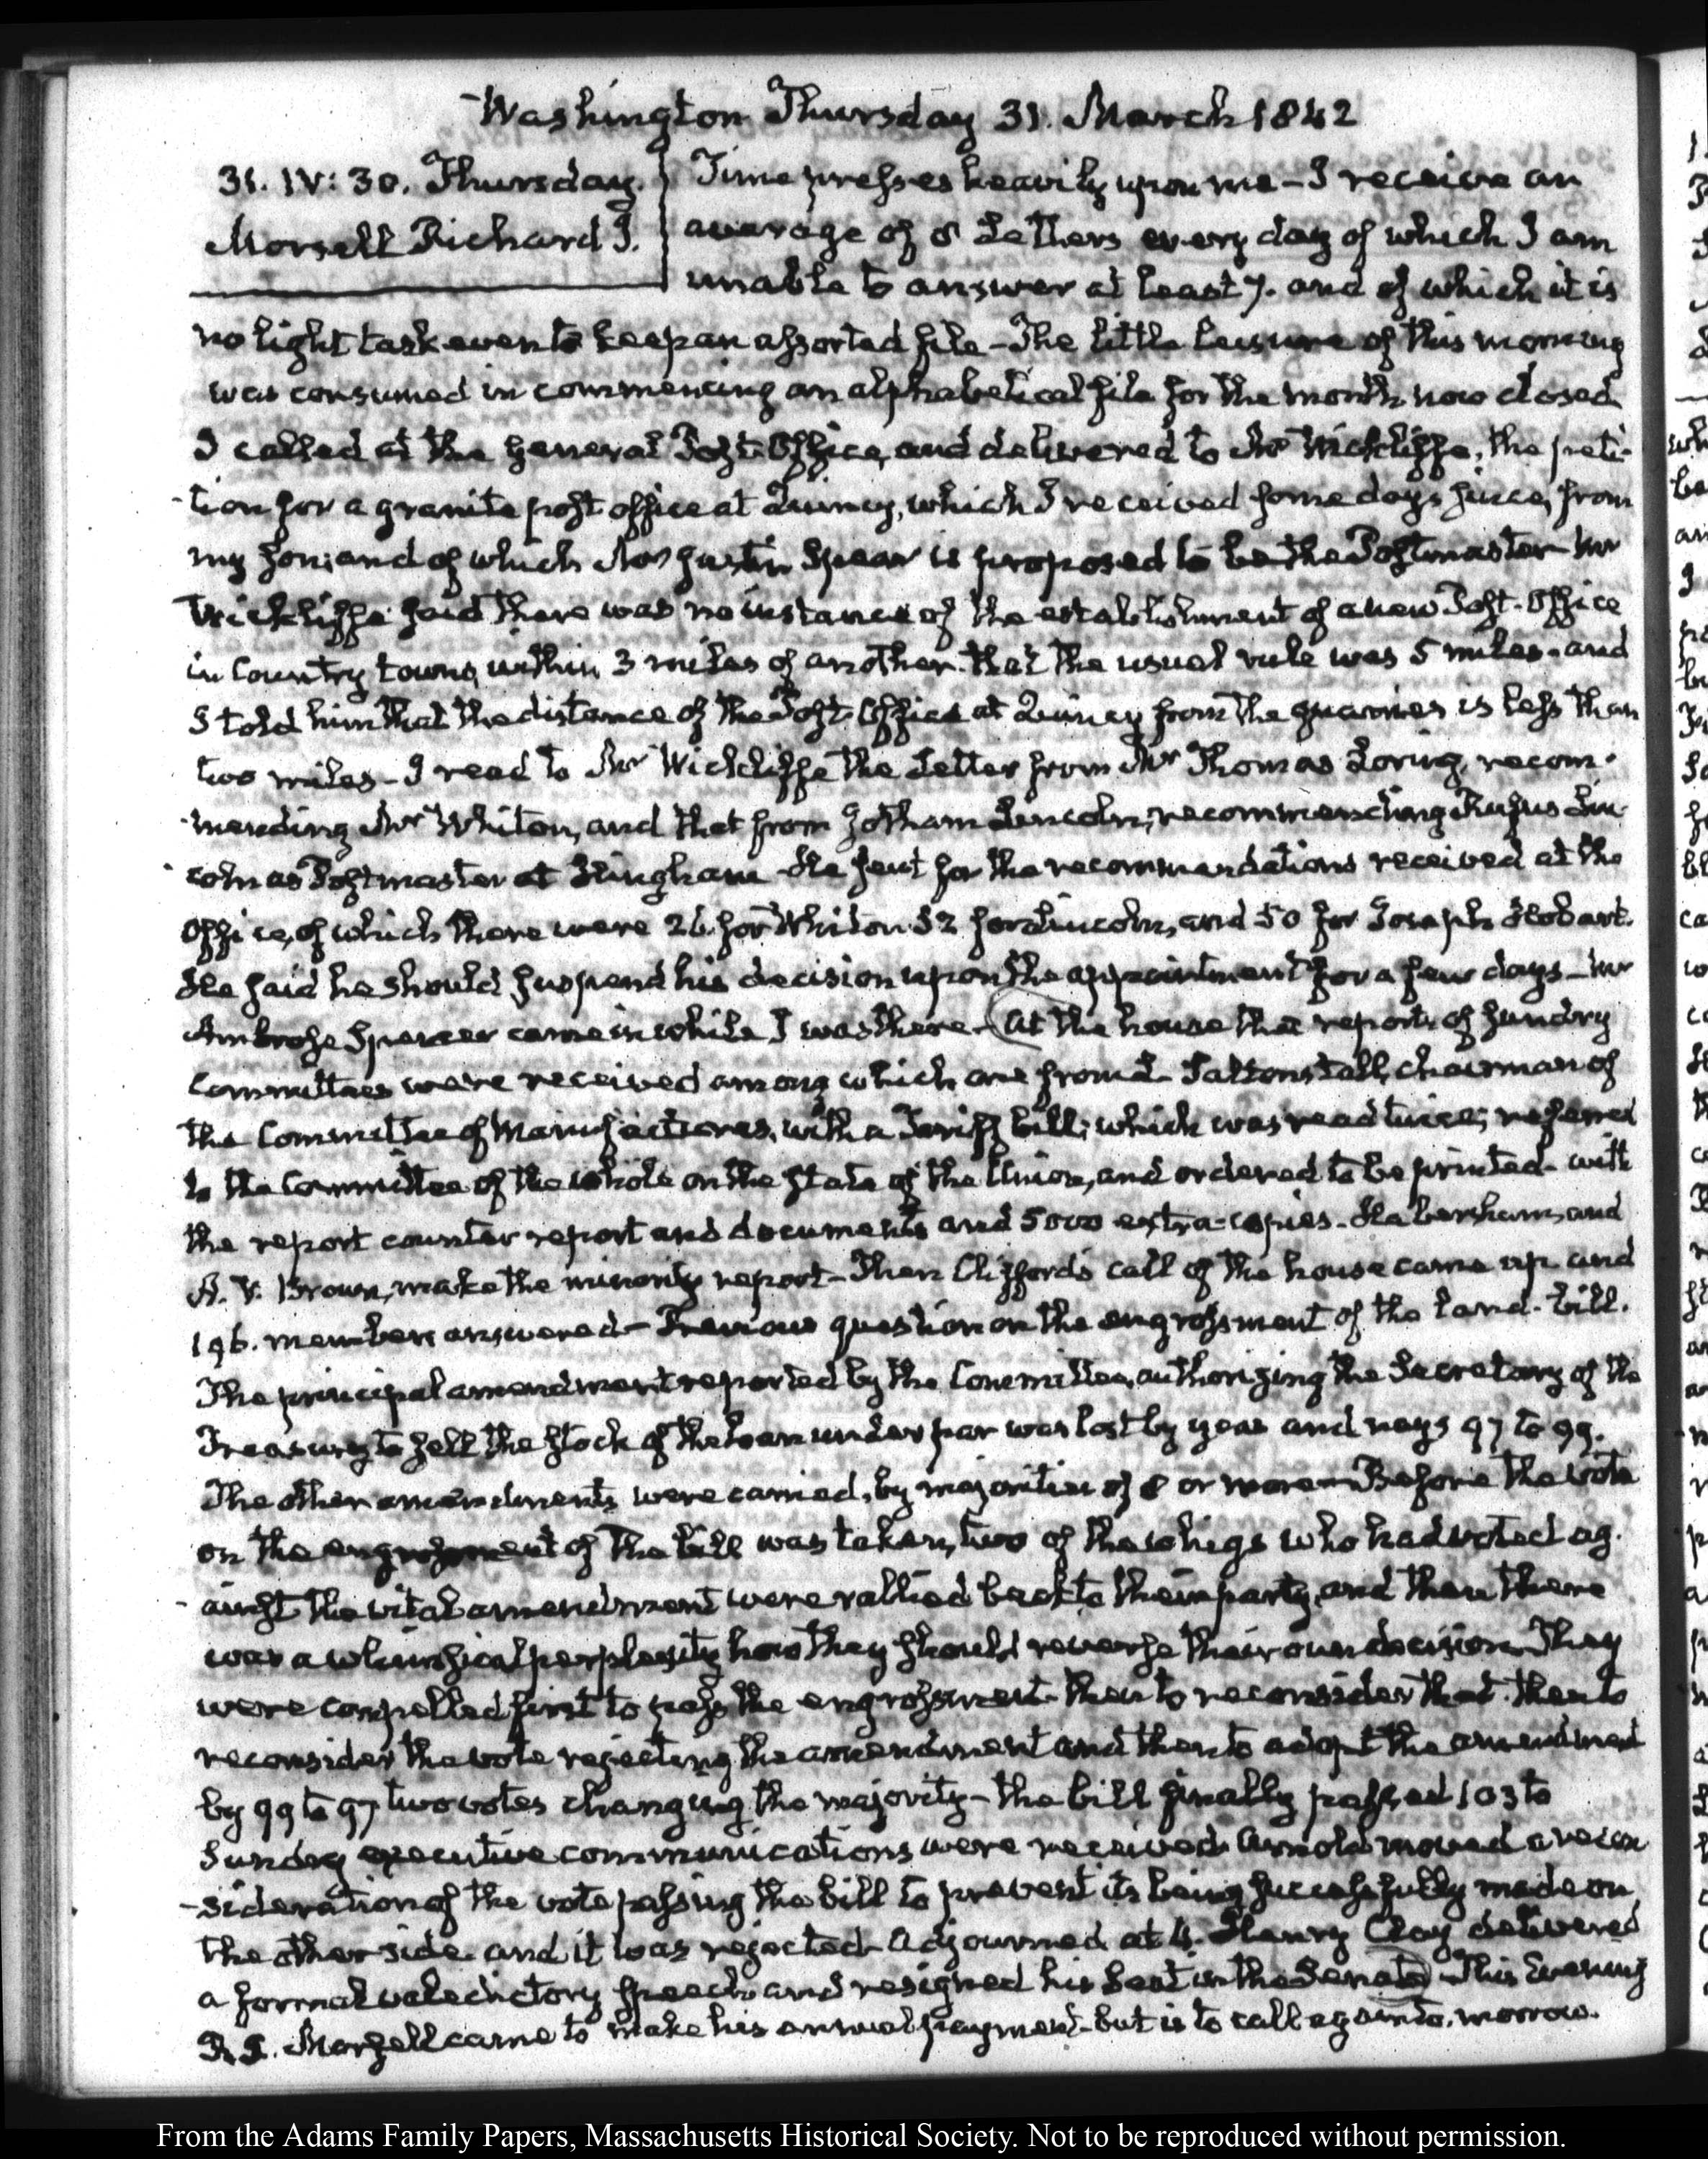 Washington Thursday 31. March 1842
31. IV: 30. Thursday.
Morsell Richard J.
Time presses heavily upon me - I receive an
average of 8 Letters every day of which I am
unable to answer at least 7. and of which it is
no light task even to keep an assorted file - The little leisure of this morning
was consumed in commencing an alphabetical file for the month now closed
I called at the general Post-Office, and delivered to Mr Wickliffe, the peti-
-tion for a granite post office at Quincy, which I received some days since, from
my son; and of which Mr Justin Spear is proposed to be the Postmaster - Mr
Wickliffe said there was no instance of the establishment of a new Post-Office
in Country towns, within 3 miles of another. that the usual rule was 5 miles - and
I told him that the distance of the Post-Office at Quincy from the quarries is less than
two miles - I read to Mr Wickliffe the Letter from Mr Thomas Loring, recom-
-mending Mr Whiton, and that from Jotham Lincoln, recommending Rufus Lin-
coln as Postmaster at Hingham - He sent for the recommendations received at the
Office, of which there were 26 for Whiton 52 for Lincoln, and 50 for Joseph Hobart.
He said he should suspend his decision upon the appointment for a few days - Mr
Ambrose Spencer came in while I was there - At the house the reports of sundry
Committees were received among which one from L. Saltonstall, chairman of
the Committee of Manufactures, with a Tariff bill; which was read twice; referred
to the Committee of the whole on the State of the Union, and ordered to be printed - with
the report counter report and documents and 5000 extra-copies - Habersham, and
A. V. Brown, make the minority report - Then Clifford's call of the house came up and
196. members answered - Previous question on the engrossment of the land-bill.
The principal amendment reported by the Committee, authorizing the Secretary of the
Treasury to sell the stock of the loan under par was lost by yeas and nays 97 to 99.
The other amendments were carried, by majorities of 8 or more - Before the vote
on the engrossment of the bill was taken, two of the whigs who had voted ag-
-ainst the vital amendment were rallied back to their party, and then there
was a whimsical perplexity how they should reverse their own decision. They
were compelled first to pass the engrossment - then to reconsider that - then to
reconsider the vote rejecting the amendment and then to adopt the amendment
by 99 to 97 two votes changing the majority - the bill finally passed 103 to
Sundry executive communications were received. Arnold moved a recon
-sideration of the vote passing the bill to prevent its being successfully made on
the other side. and it was rejected - Adjourned at 4. Henry Clay delivered
a formal valedictory speech and resigned his Seat in the Senate - This Evening
R. J. Morsell came to make his annual payment - but is to call again to-morrow.
From the Adams Family Papers, Massachusetts Historical Society. Not to be reproduced without permission.